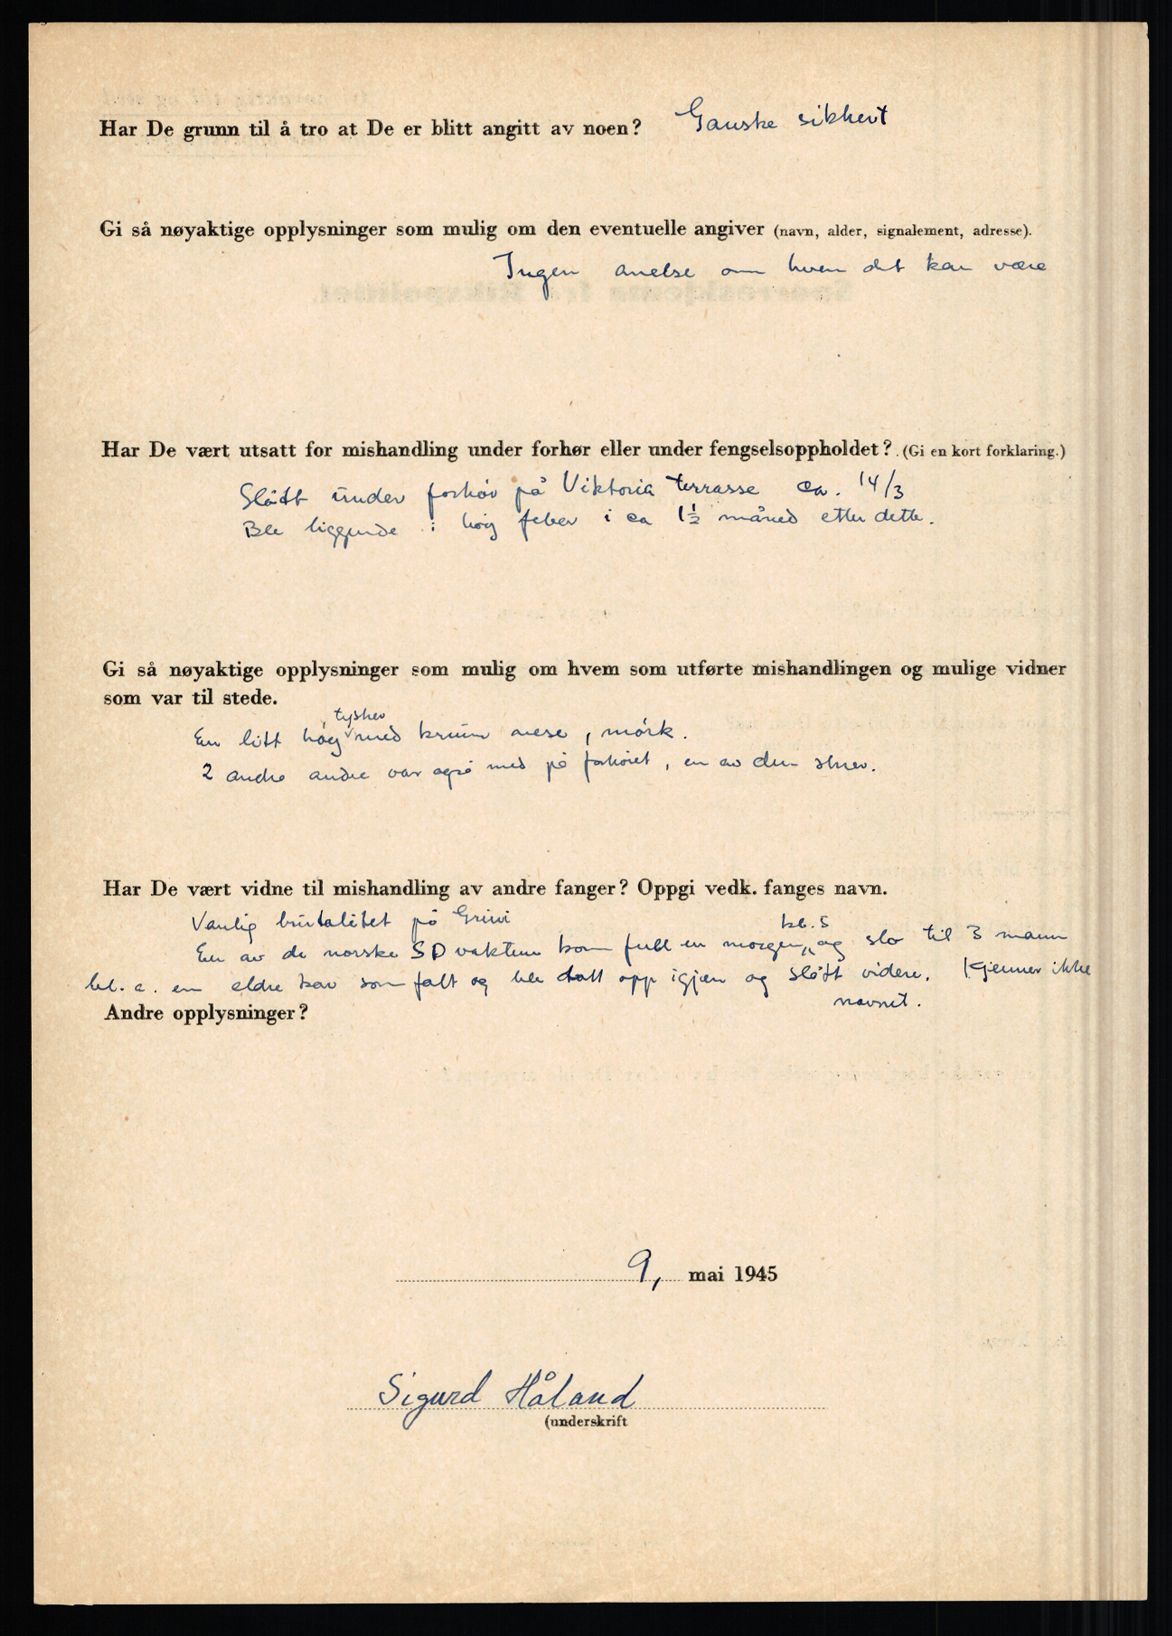 Har De grunn til å tro at De er blitt angitt av noen? Ganske sikkert
Gi så nøyaktige opplysninger som mulig om den eventuelle angiver (navn, alder, signalement, adresse).
Ingen anelse om hvem det kan være
Har De vært utsatt for mishandling under forhør eller under fengselsoppholdet? (Gi en kort forklaring.)
Slått under forhör på Viktoria terrasse ca. 14/3
Ble liggende i höy feber i ca 1½ måned etter dette.
Gi så nøyaktige opplysninger som mulig om hvem som utførte mishandlingen og mulige vidner
som var til stede.
En litt höy tysker med krum nese, mörk.
2 andre andre var også med på forhöret, en av dem skrev.
Har De vært vidne til mishandling av andre fanger? Oppgi vedk. fanges navn.
Vanlig brutalitet på Grini
En av de norske SD vaktene kom full en morgen kl. 5 og slo til 3 mann
bl. a. en eldre kar som falt og ble tatt opp igjen og slått videre. Kjenner ikke
navnet.
Andre opplysninger?
9, mai 1945
Sigurd Håland
(underskrift